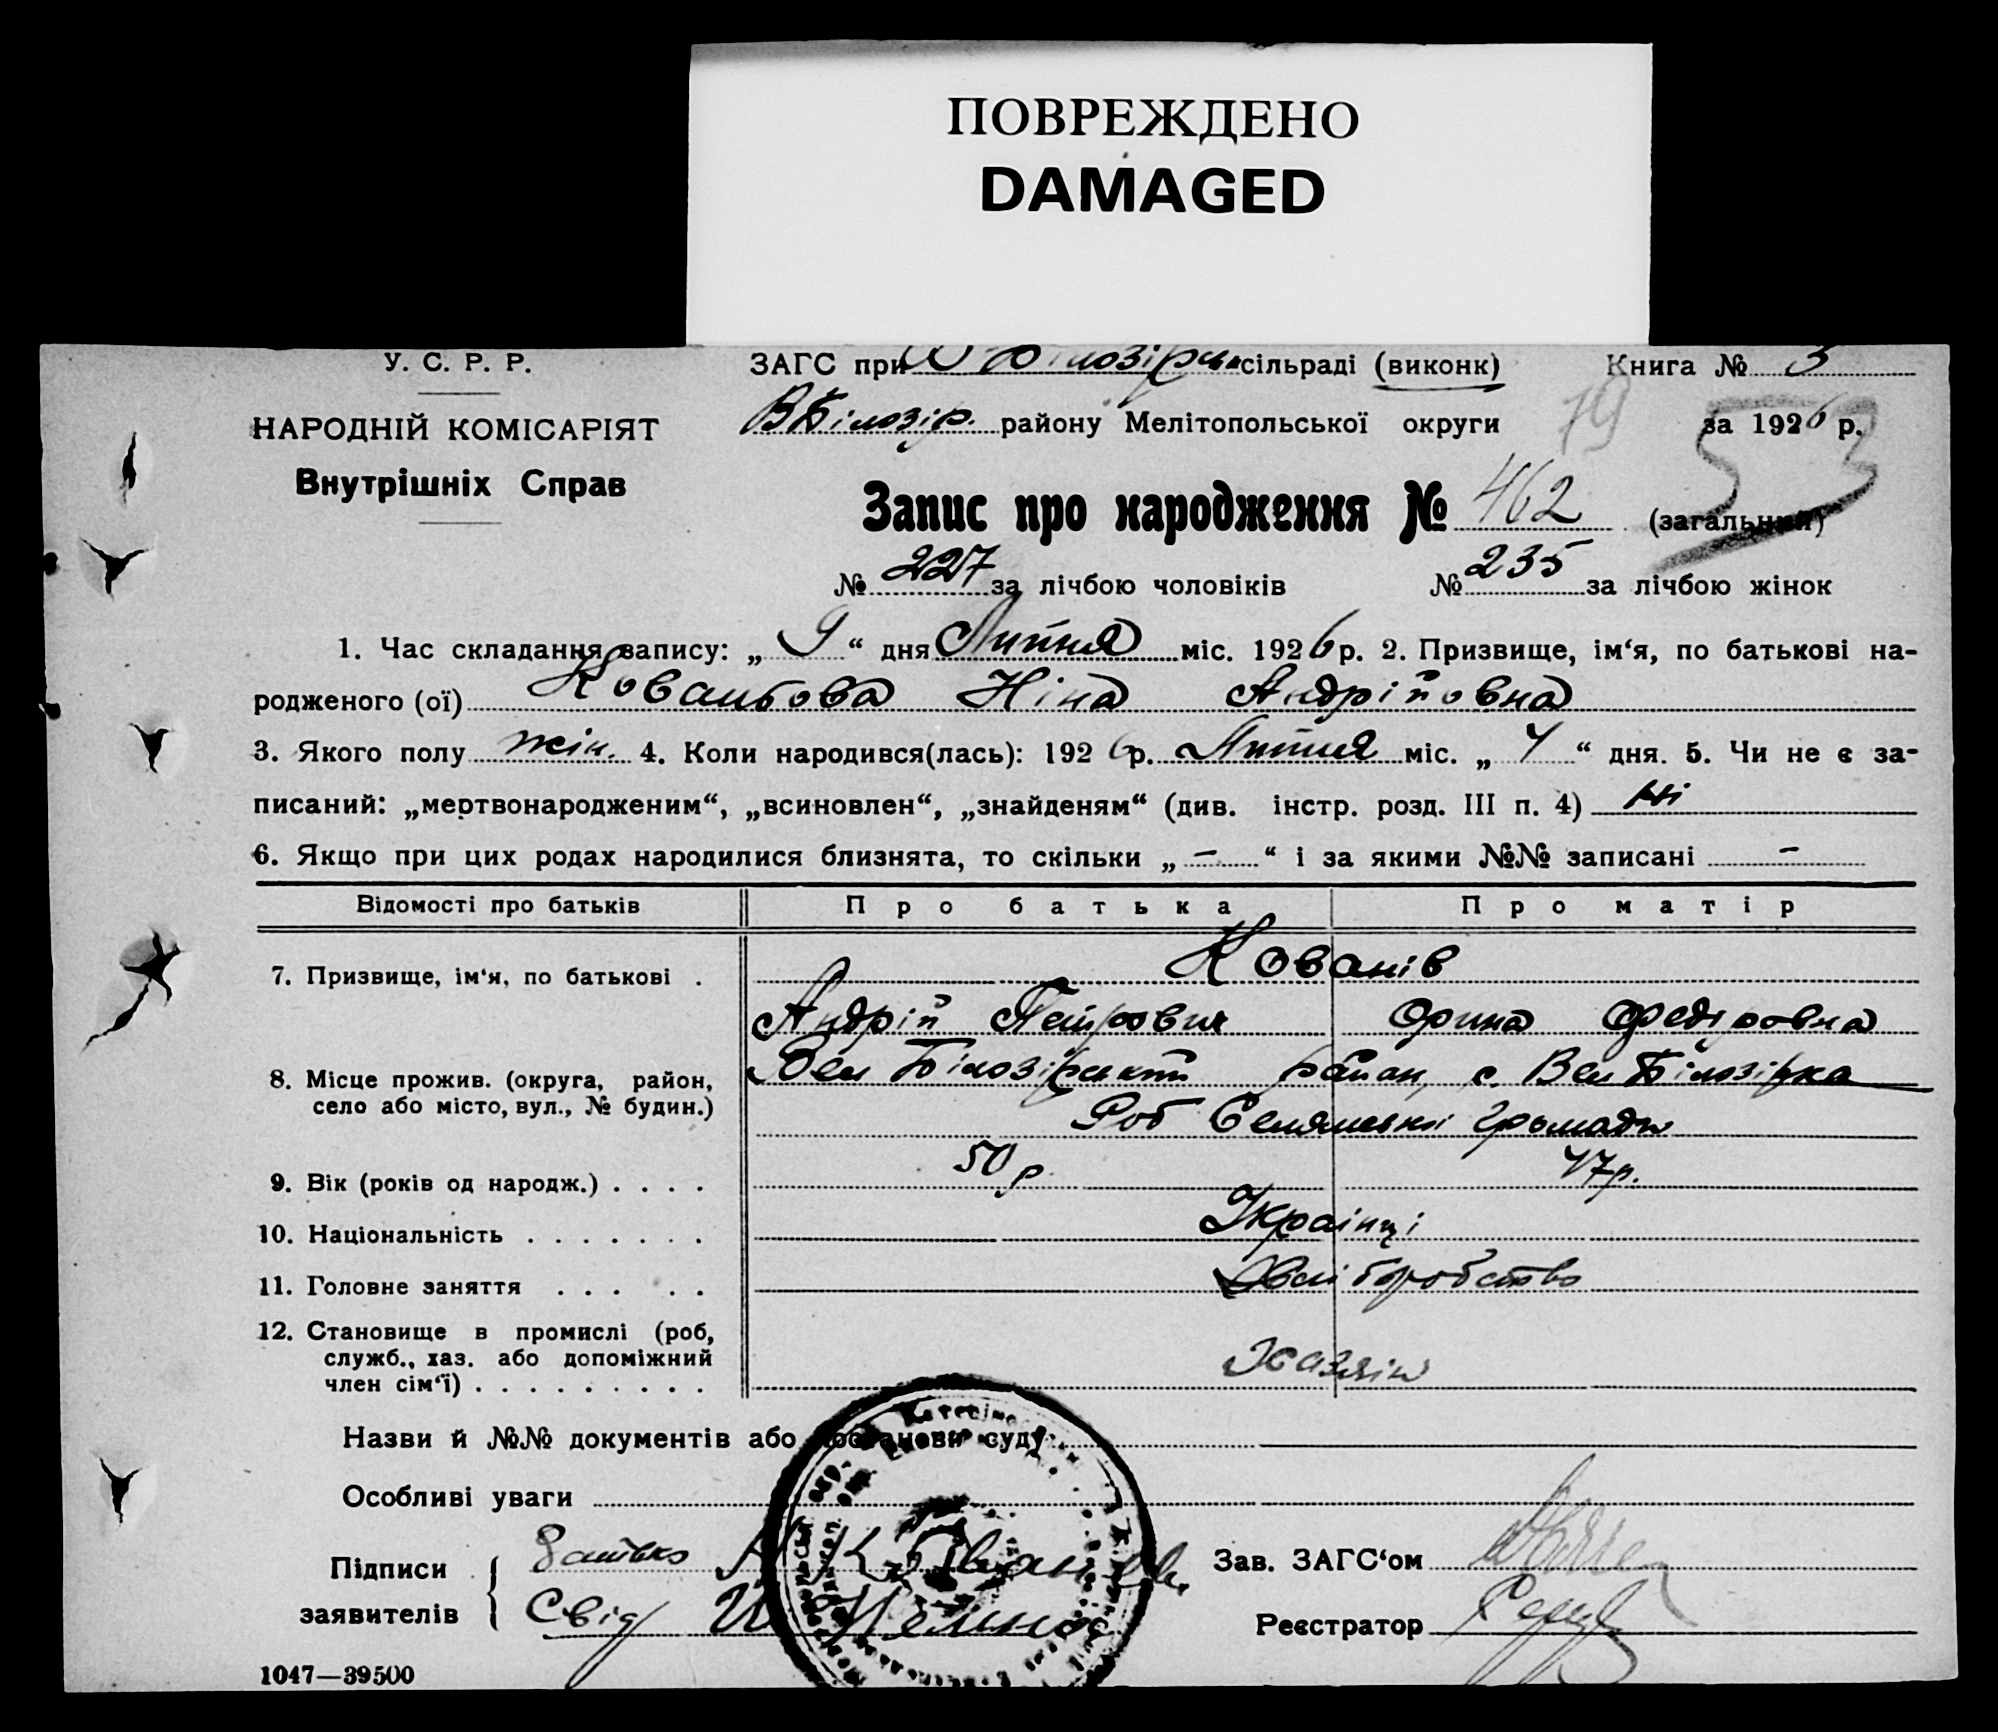 ПОВРЕЖДЕНО
DAMAGED
У. С. Р. Р.
ЗАГС при В Білозірск сільраді (виконк)
Книга № 3
НАРОДНІЙ КОМІСАРІЯТ
ВБілозір. району Мелітопольської округи
79
за 1926 р.
53
Внутрішніх Справ
Запис про народження № 462 (загальний)
№ 227 за лічбою чоловіків № 235 за лічбою жінок
1. Час складання запису: „ 9 “ дня Липня міс. 1926 р. 2. Призвище, ім‘я, по батькові на-
родженого (ої) Ніна Андріївна
3. Якого полу жін. 4. Коли народився(лась): 1926 р. Липня міс. „ 4 “ дня. 5. Чи не є за-
писаний: „мертвонародженим“, „всиновлен“, „знайденям“ (див. інстр. розд. III п. 4) ні
6. Якщо при цих родах народилися близнята, то скільки „ - “ і за якими №№ записані -
Відомості про батьків Про батька Про матір
7. Призвище, ім‘я, по батькові . Кованів
Андрій Петрович Орина Федоровна
8. Місце прожив. (округа, район,
село або місто, вул., № будин.)
Вел Білозірський район, с. Вел Білозірка
Громади
9. Вік (років од народж.) . . . . 50 р 47 р.
10. Національність . . . . . . . Українці
11. Головне заняття . . . . . Хліборобство
12. Становище в промислі (роб,
служб., хаз. або допоміжний
член сім‘ї) . . . . . . . . . Хазяїн
Назви й №№ документів або постанови суду
Особливі уваги
Підписи
заявителів
Батько
Свід
Зав. ЗАГС‘ом
Реєстратор
1047—39500